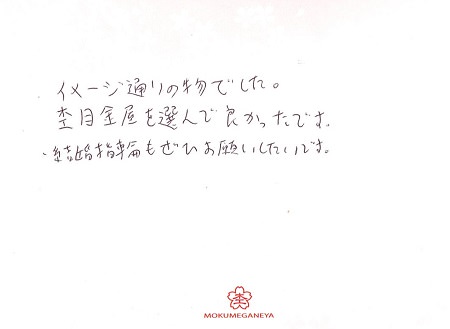 イメージ通りの物でした。
杢目金屋を選んで良かったです。
結婚指輪もぜひお願いしたいです。
杢
MOKUMEGANEYA